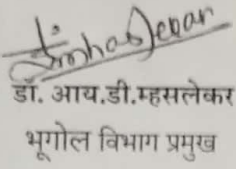 डॉ. आय.डी.म्हसलेकर
भूगोल विभाग प्रमुख